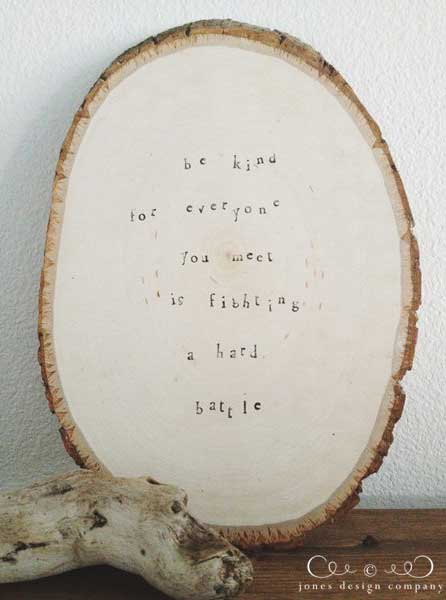 be kind
for everyone
you meet
is fighting
a hard
battle
©
jones design company